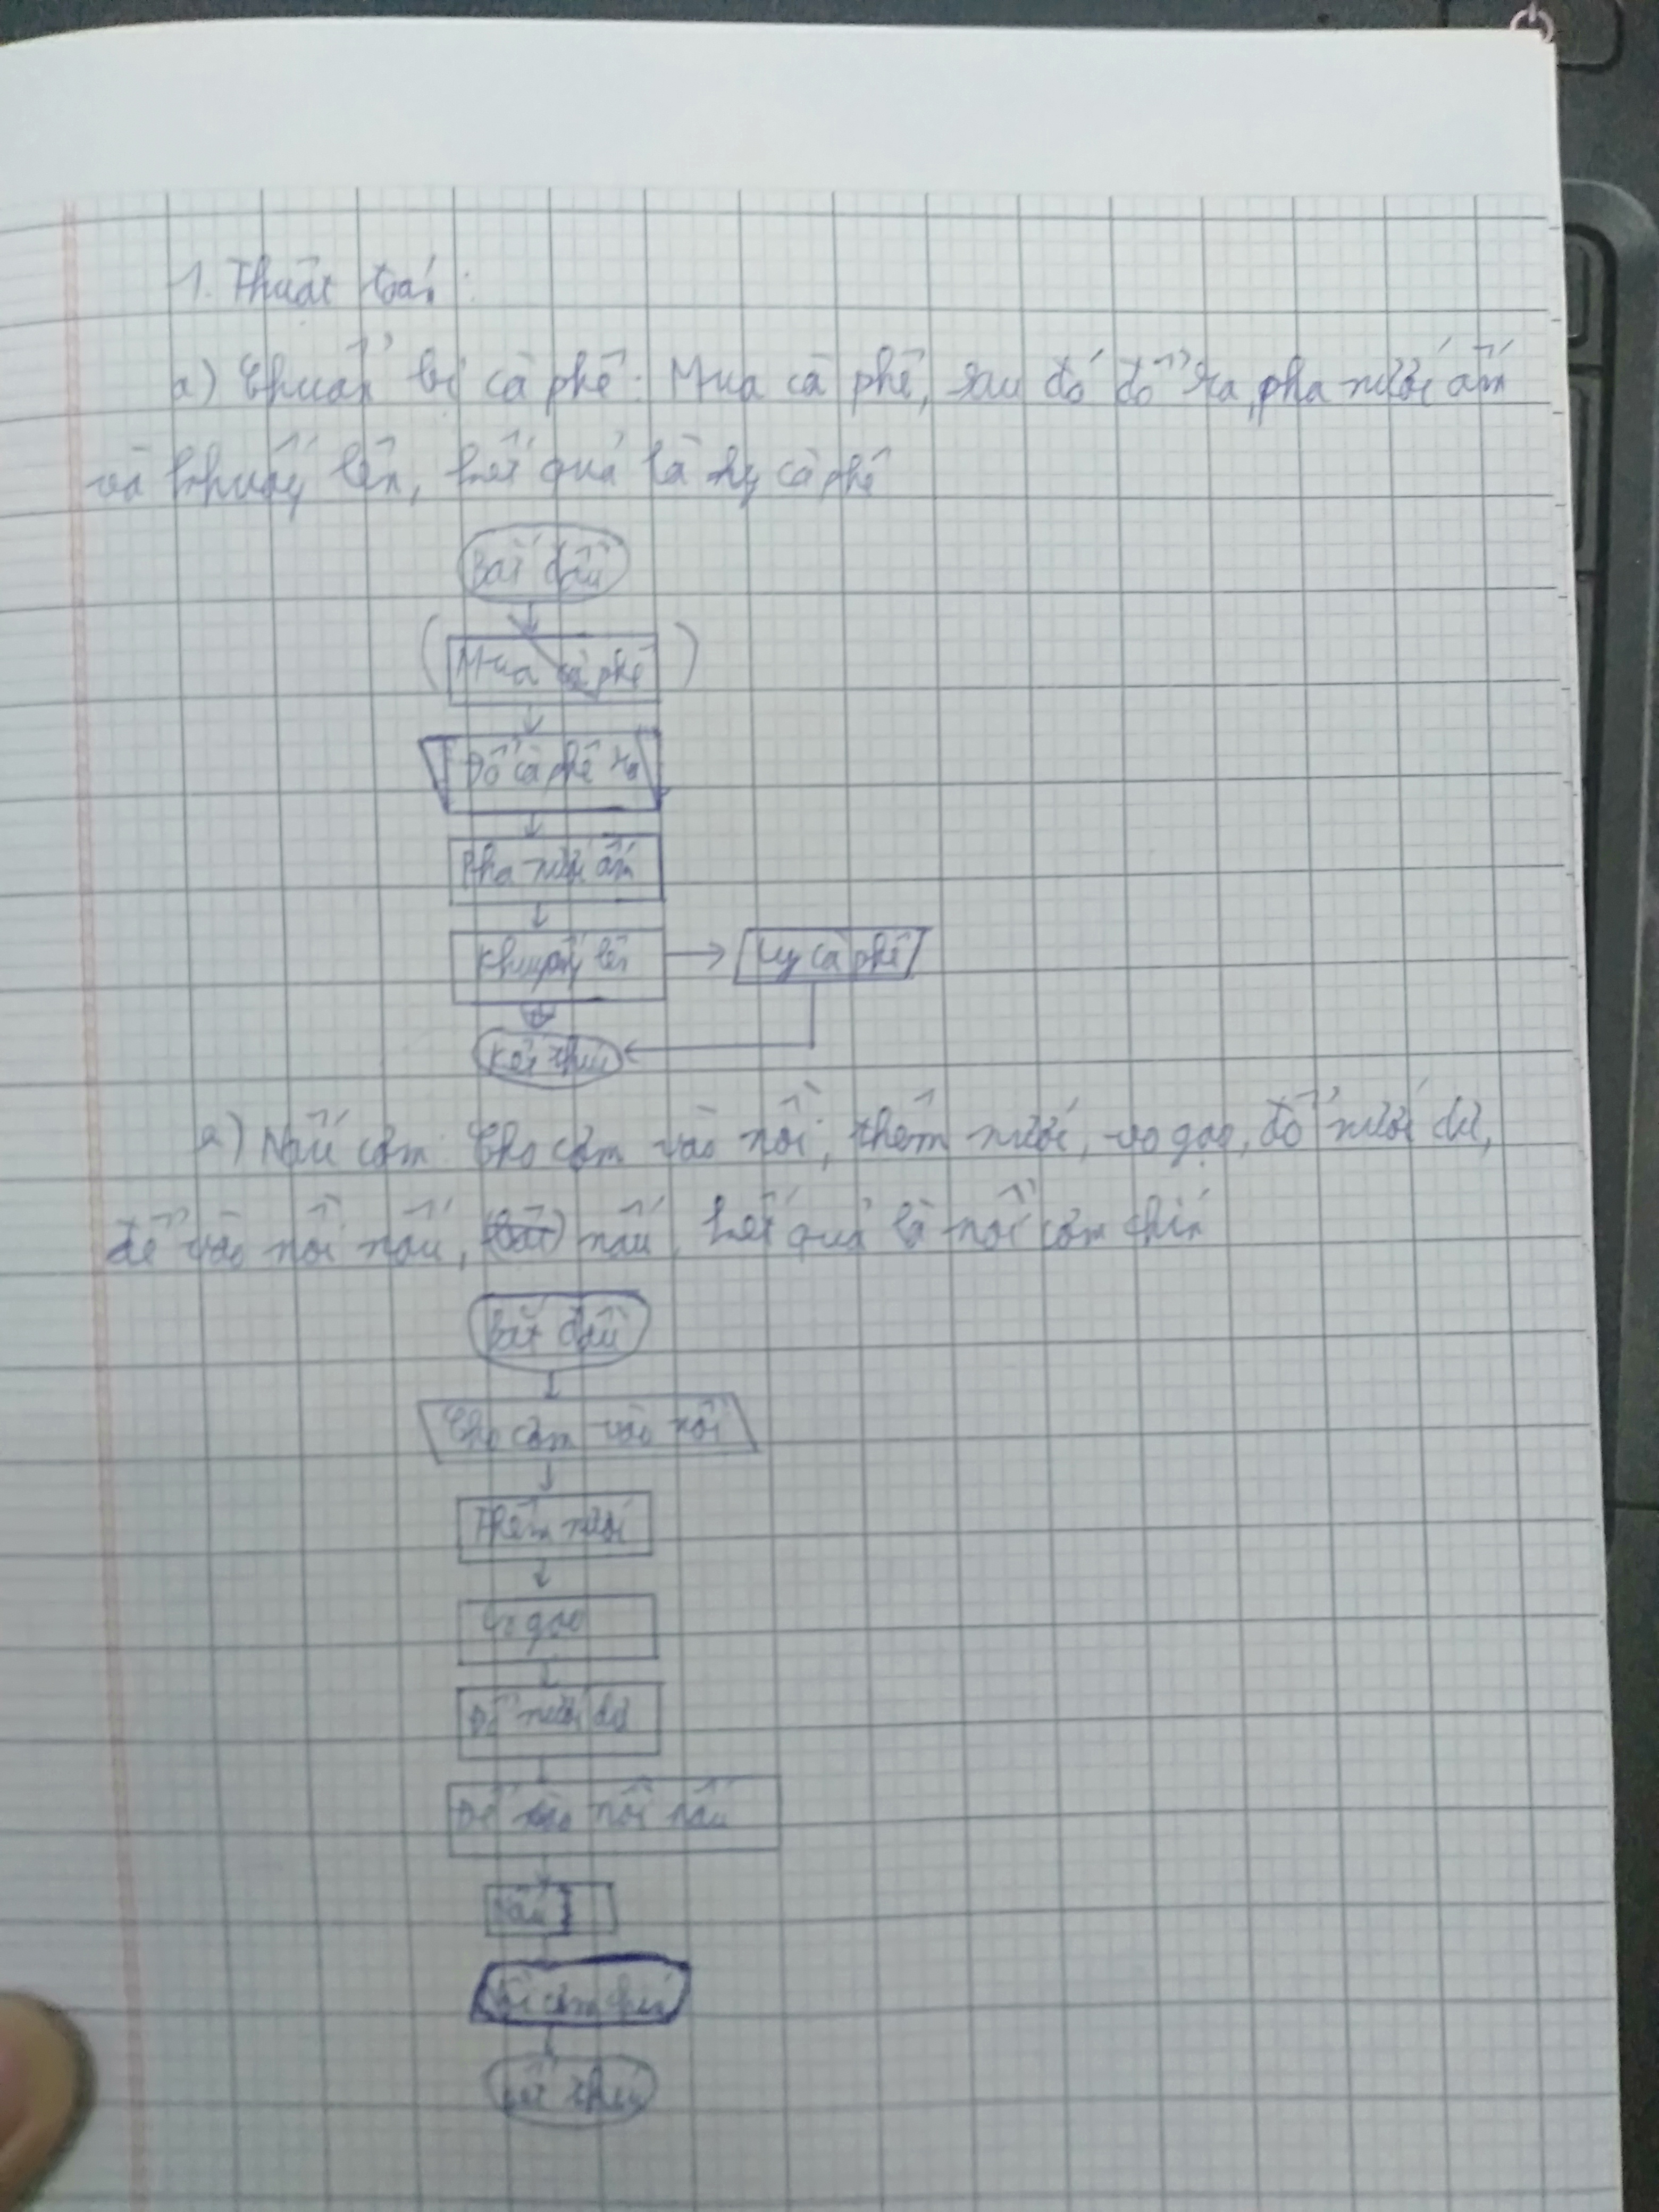 1. Thuật toán:
a) Chuẩn bị cà phê: Mua cà phê, sau đó đổ ra, pha nước ấm
và khuấy lên, kết quả là ly cà phê
Bắt đầu
(Mua cà phê)
Đổ cà phê ra
Pha nước ấm
Khuấy lên
Ly cà phê
Kết thúc
a) Nấu cơm: Cho cơm vào nồi, thêm nước, vo gạo, đổ nước dư,
để vào nồi nấu, nấu, kết quả là nồi cơm chín
Bắt đầu
Cho cơm vào nồi
Thêm nước
Vo gạo
Đổ nước dư
Để vào nồi nấu
Nấu
Nồi cơm chín
Kết thúc